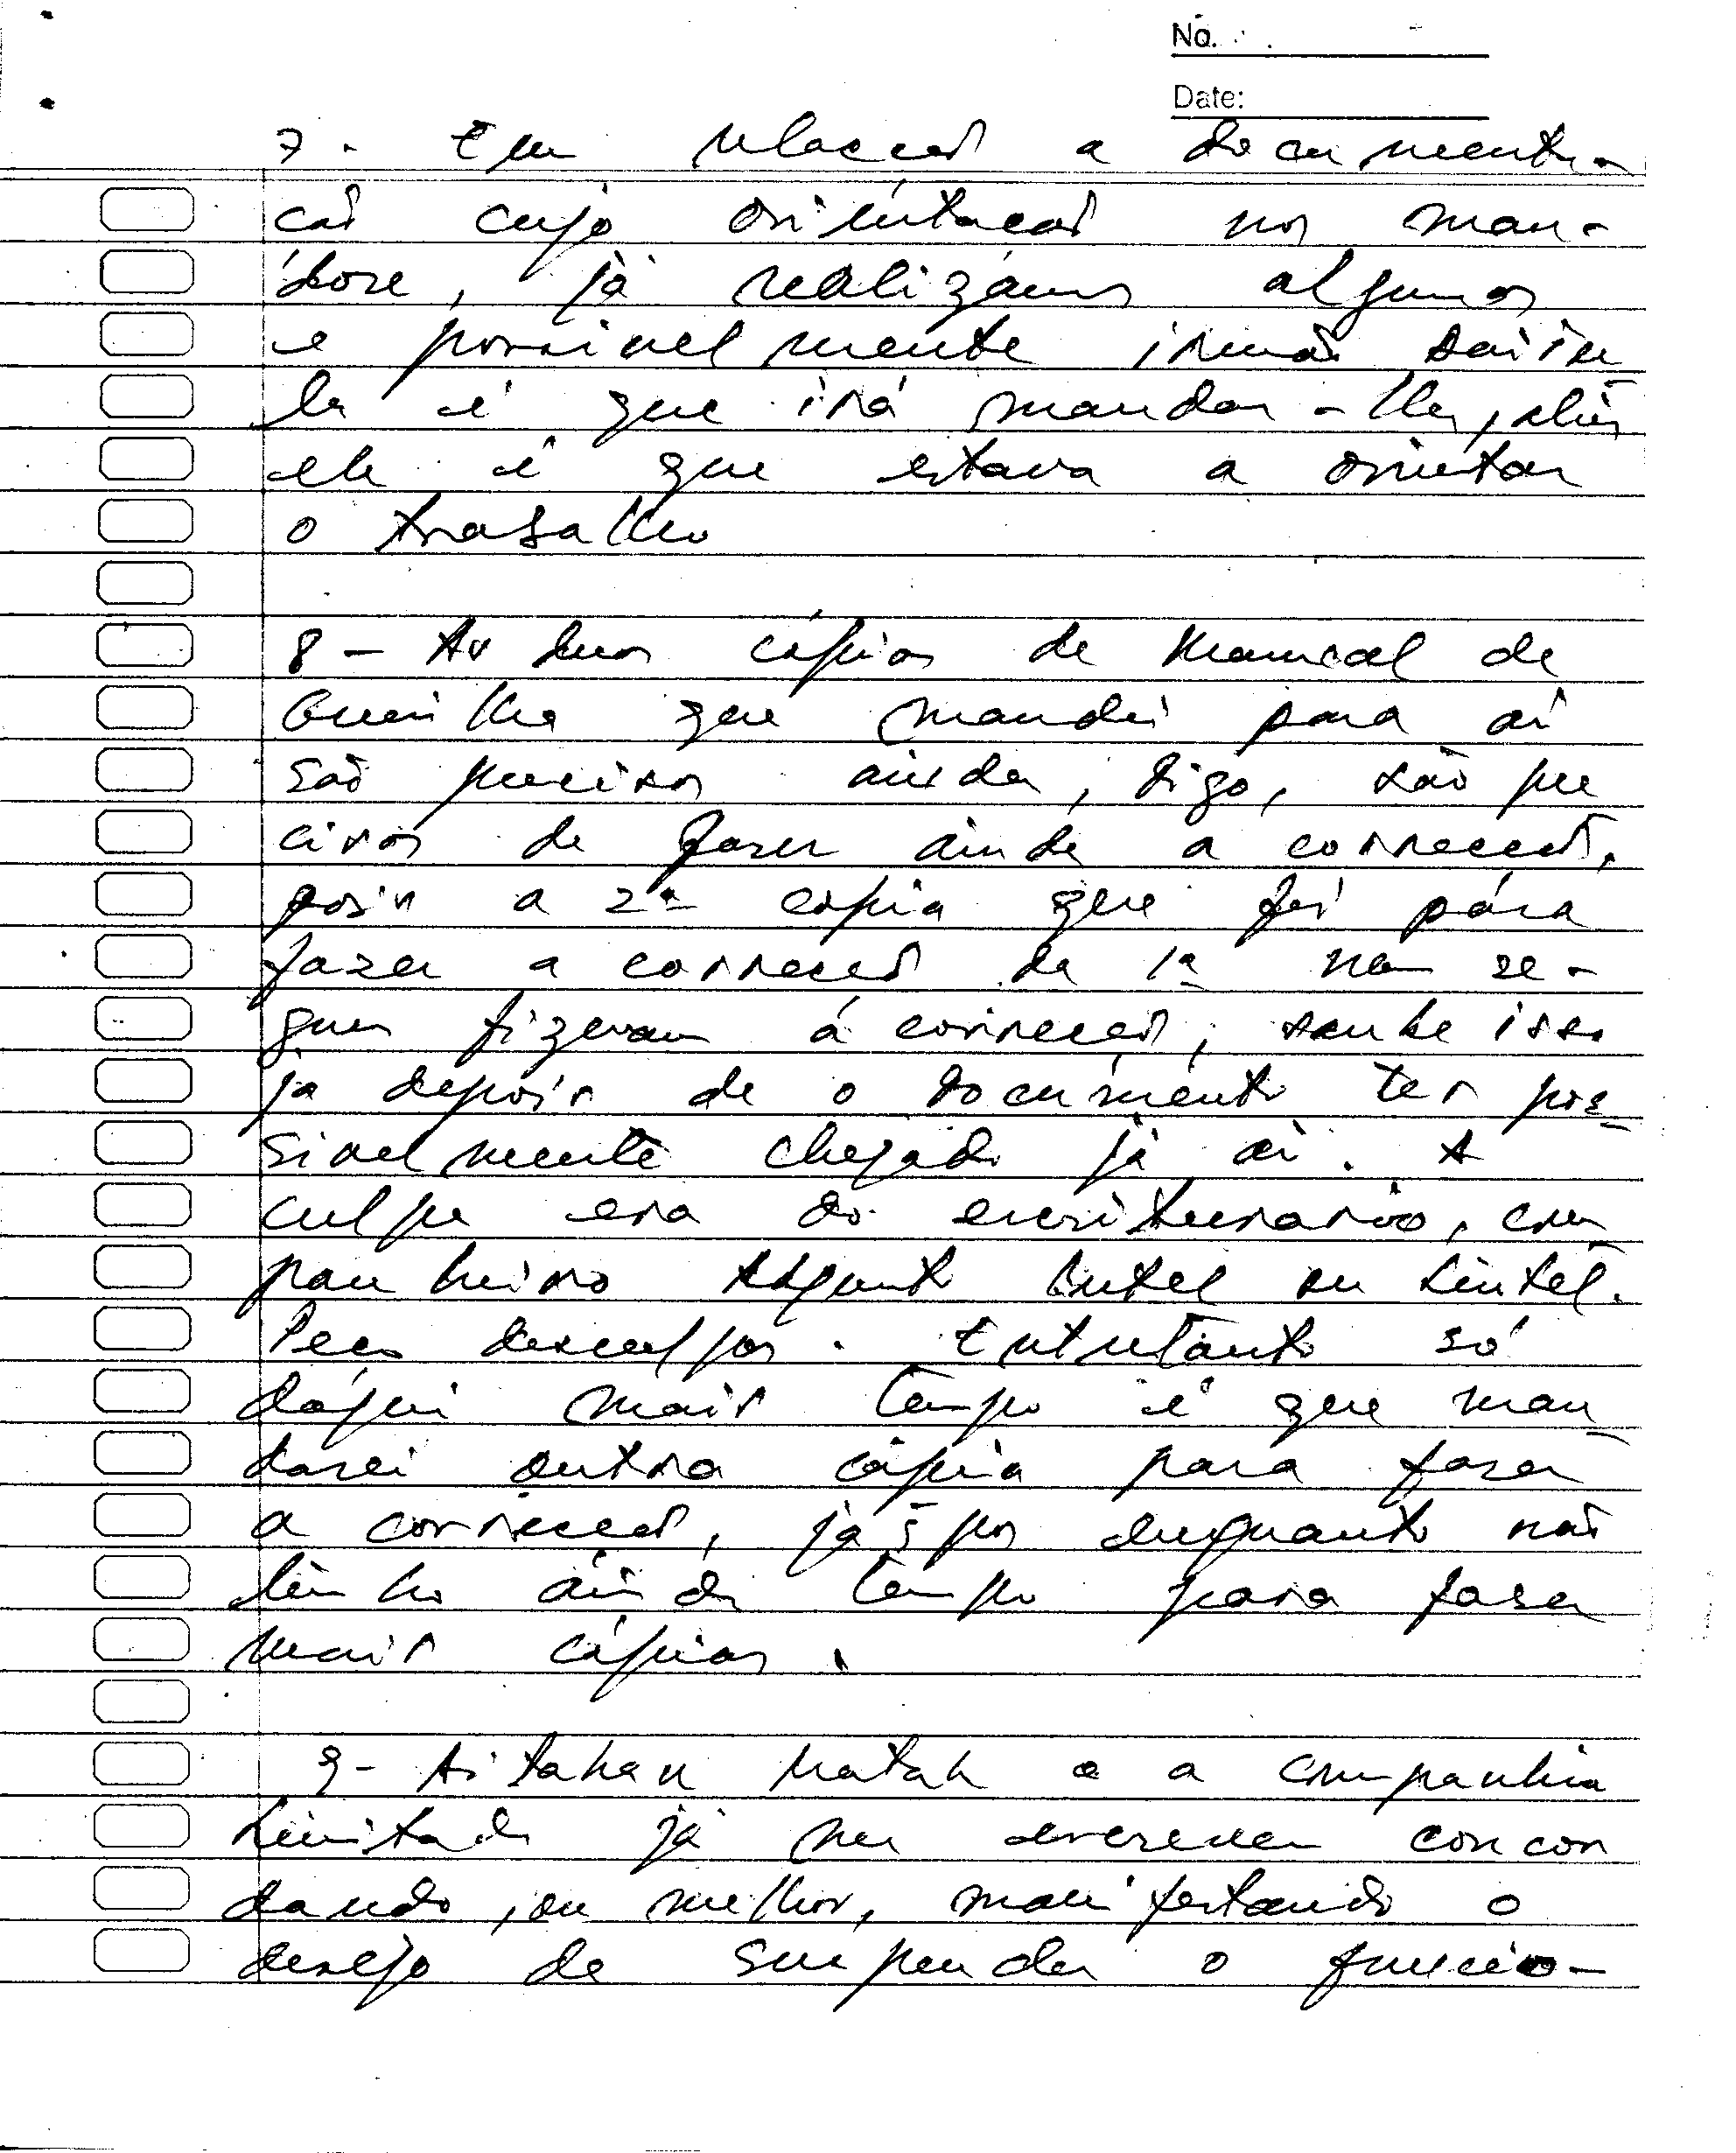 No.
Date:
7 - Em relaccao a documenta-
cao cujo orientacao nos man-
dore, já realizámos algumas
e possivelmente irmao
le é que irá mandar-lhe, aliás
ele é que estava a orientar
o trabalho
8 - As duas cópias de Manual de
Guerilha que mandei para aí
são precisos ainda, digo, são pre
cisos de fazer ainda a correccao,
pois a 2ª copia que foi pára
fazer a correccao da 1ª nem se-
quer fizeram á correccao, soube isso
ja depois de o documento ter pos-
sivelmente chegado já aí. A
culpa era do escriturario, com
panheiro Adjunto Intel ou Lintel.
Peco desculpas. Entretanto só
dáqui mais tempo é que man-
darei outra cópia para fazer
a correccao, já q por enquanto nao
tenho ainda tempo para fazer
mais cópias.
9 - Aitahan Matak e a companhia
Limitada já me escrevem concor
dando, ou melhor, manifestando o
desejo de suspender o funcio-